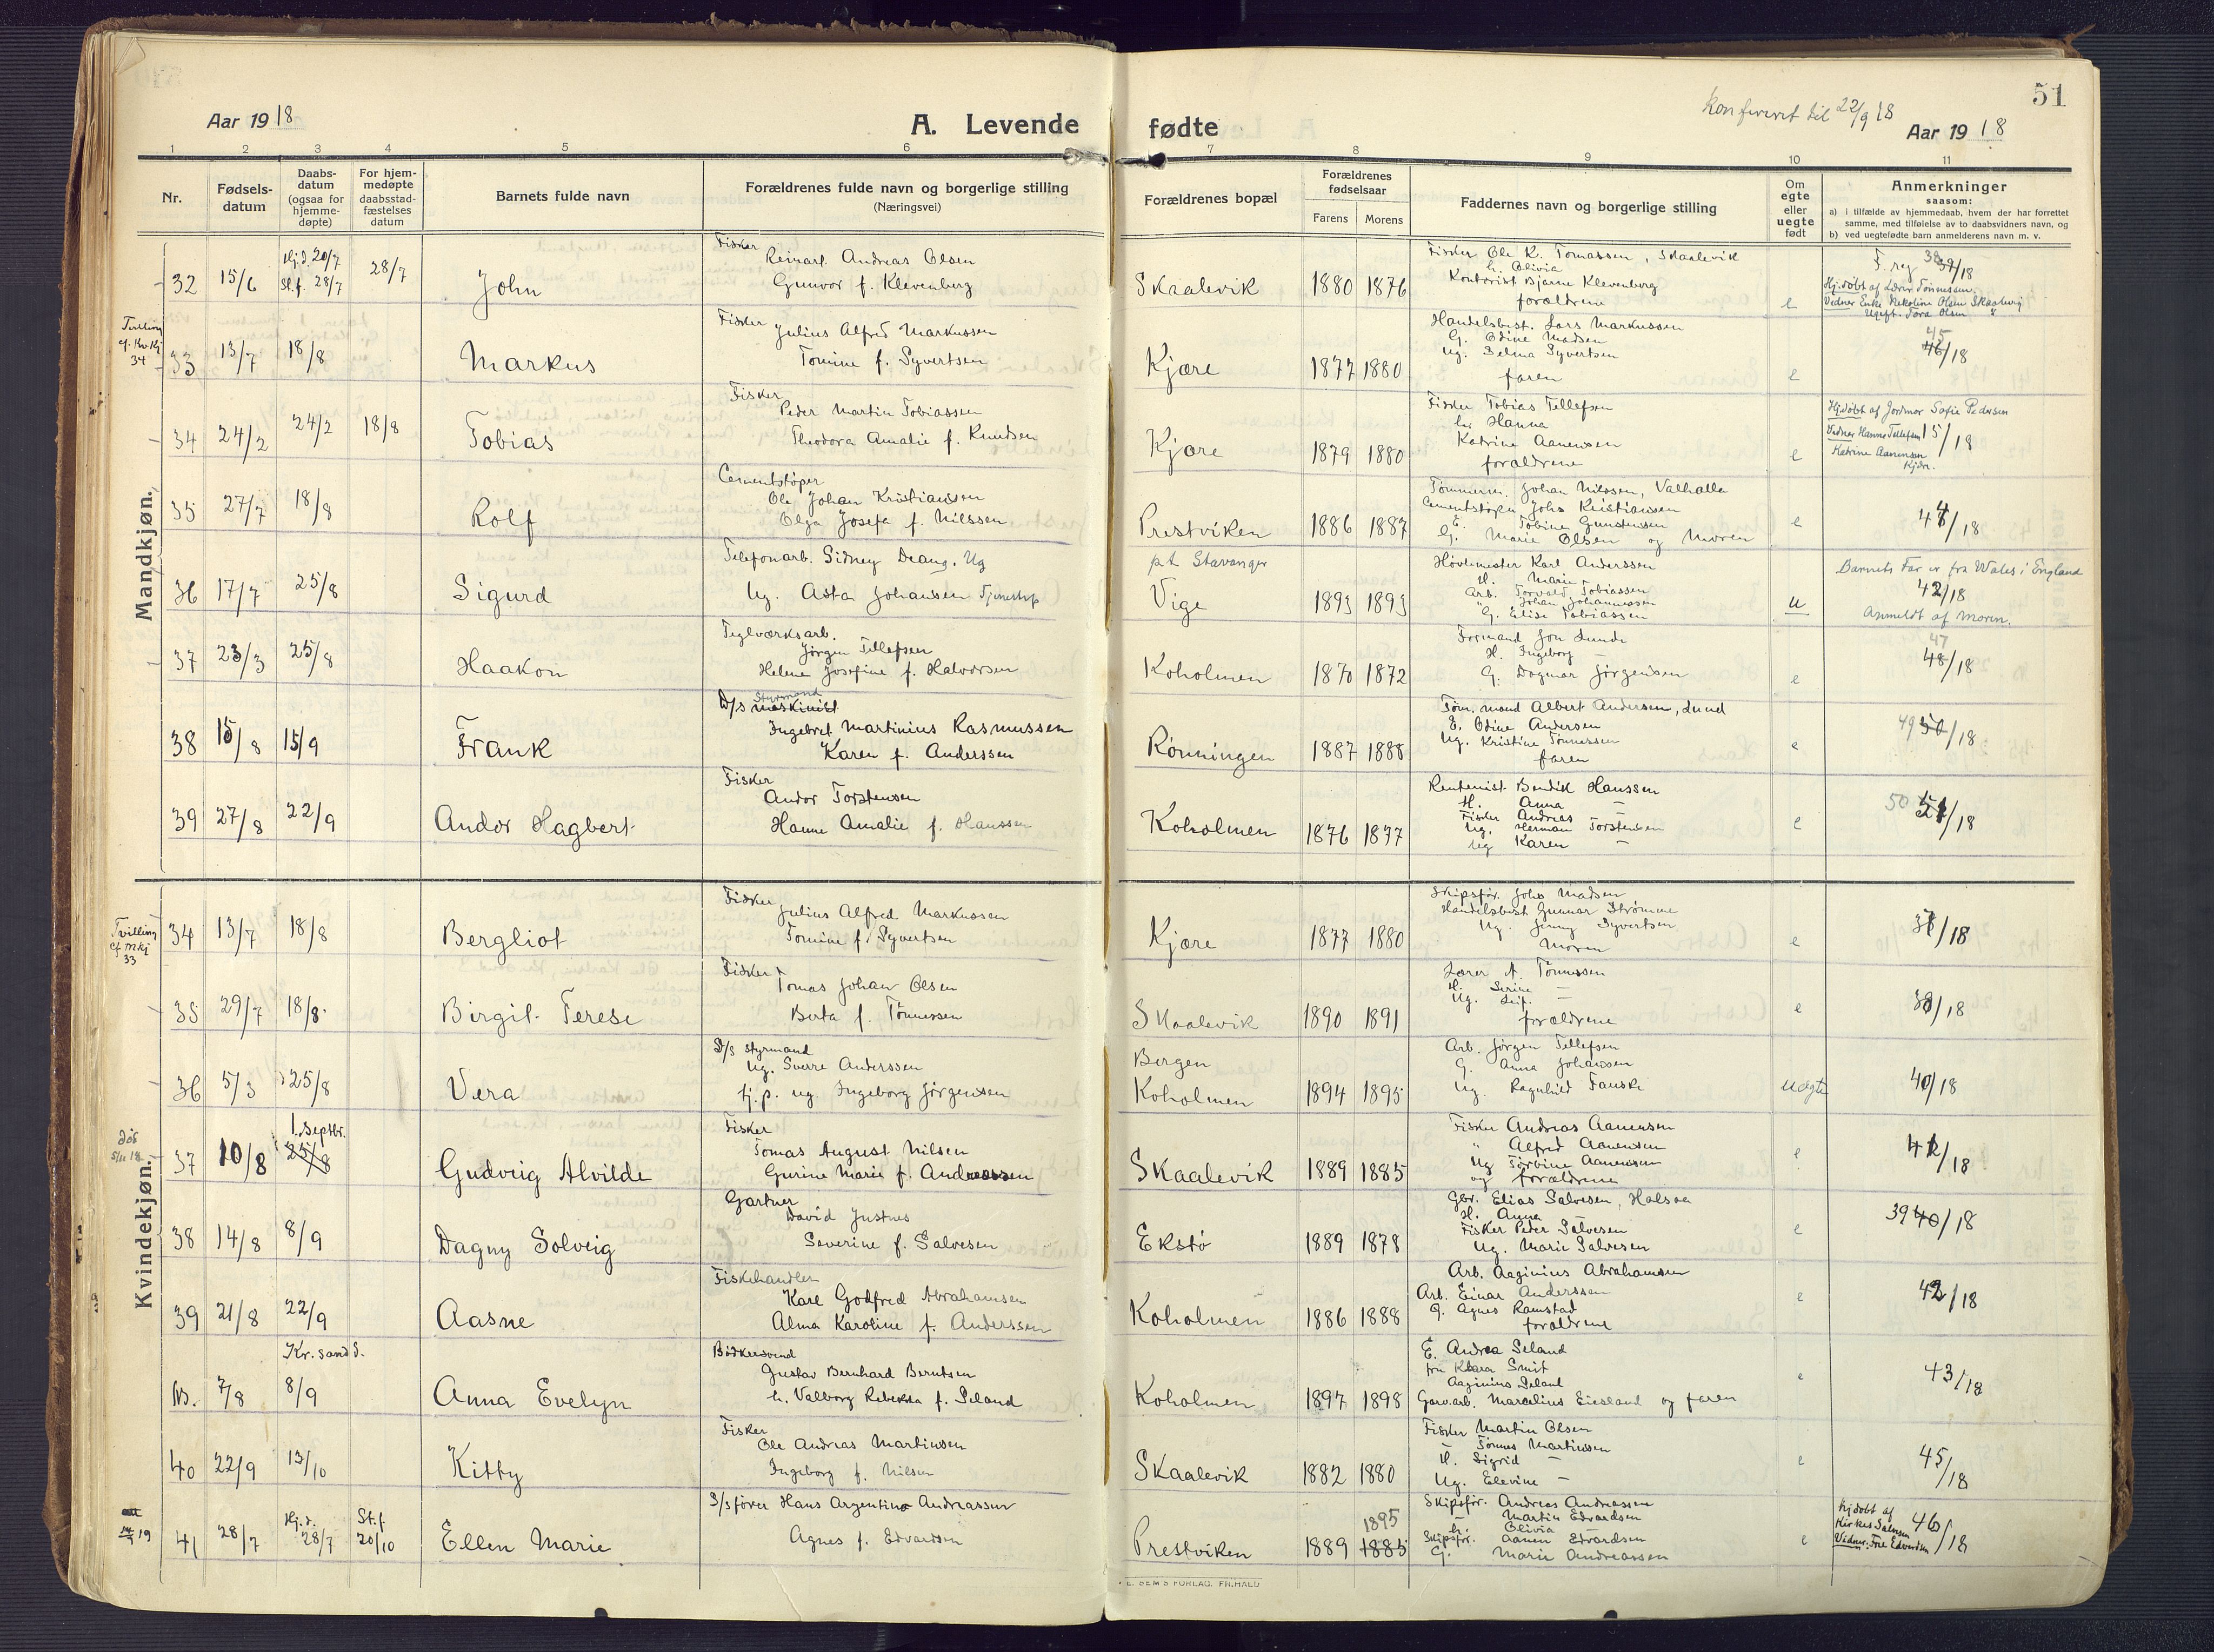 51
Konfereret til 22/9 18
Aar 1918
A. Levende fødte
Aar 1918
1 2 3 4 5 6 7 8 9 10 11
Nr.
Fødsels-datum
Daabs-datum (ogsaa for hjemme-døpte)
For hjem-medøpte daabsstad-fæstelses datum
Barnets fulde navn
Forældrenes fulde navn og borgerlige stilling
(Næringsvei)
Forældrenes bopæl
Forældrenes fødselsaar
Farens Morens
Faddernes navn og borgerlige stilling
Om egte eller uegte født
Anmerkninger
saasom:
a) i tilfælde av hjemmedaab, hvem der har forrettet samme, med tilføielse av to daabsvidners navn, og
b) ved uegtefødte barn anmelderens navn m. v.
Mandkjøn.
32 15/6 Hj.d. 20/7 St.f. 28/7 28/7 John
Fisker Reinart Andreas Olsen
Gunvor f. Klevenberg
Skaalevik 1880 1876
Fisker Ole K. Tomassen, Skaalevik
h. Olivia
Kontorist Bjarne Klevenberg
forældrene
e
F. reg 39/18
Hj.døbt af Lærer Tønnessen.
Vidner Enke Nekoline Olsen Skaalevig
Ugift. Tora Olsen "
Tvilling cf. Kv.kj 34
33 13/7 18/8 Markus
Fisker Julius Alfred Markussen
Tomine f. Syvertsen
Kjære 1877 1880
Handelsbest. Lars Markussen
G. Odine Madsen
Ug. Selma Syvertsen
faren
e
45
46/18
34 24/2 24/2 18/8 Tobias
Fisker
Peder Martin Tobiassen
Theodora Amalie f. Knudsen
Kjære 1879 1880
Fisker Tobias Tellefsen
hr Hanna
Katrine Aanensen
forældrene
e
Hj.døbt af Jordmor Sofie Pedersen
Vidner Hanna Tellefsen 15/18
Katrine Aanensen
Kjære.
35 27/7 18/8 Rolf
Cementstøper
Ole Johan Kristiansen
Olga Josefa f. Nilssen
Prestviken 1886 1887
Tømmerm. Johan Nilssen, Valhalla
Cementstøper Johs Kristiansen
E. Tobine Gunstensen
G. Marie Olsen og Moren
e
47/18
36 17/7 25/8 Sigurd
Telefonarb. Sidney Deang. Ug
Ug. Asta Johansen Tjenestep
p.t Stavanger
Vige 1893 1893
Høvlmester Karl Anderssen
H. Marie
Arb. Torvald Tobiassen
" Johan Johannessen
G. Elise Tobiassen
u
Barnets Far er fra Wales i England
42/18
Anmeldt af moren.
37 23/3 25/8 Haakon
Teglværksarb.
Jørgen Tellefsen
Helene Josefine f. Halvorsen
Koholmen 1870 1872
Formand Jon Lunde
H. Ingeborg –
G. Dagmar Jørgensen
e
47
48/18
38 15/8 15/9 Frank
D/s Styrmand maskinist
Ingebret Martinius Rasmussen
Karen f. Anderssen
Rønningen 1887 1888
Tøm.mand Albert Andersen, Lund
E. Odine Andersen
Ug. Kristine Tønnessen
faren
e
49 50/18
39 27/8 22/9 Andor Hagbert
Fisker
Andor Torstensen
Hanne Amalie f. Hanssen
Koholmen 1876 1877
Rentenist Bendik Hanssen
H. Anna –
Fisker Andreas –
Ug. Herman Torstensen
Ug Karen –
e
50 51/18
Kvindekjøn.
Tvilling cf. M.kj 33
34 13/7 18/8 Bergliot
Fisker
Julius Alfred Markussen
Tomine f. Syvertsen
Kjære 1877 1880
Skipsfør. Johs Madsen
Handelsbest Gunnar Strømme
Ug. Jenny Syvertsen
Moren
e
37/18
35 29/7 18/8 Birgit Terese
Fisker
Tomas Johan Olsen
Berta f. Tønnessen
Skaalevik 1890 1891
Lærer A. Tønnessen
H. Serine –
Ug. Leif. –
forældrene
e
38/18
36 5/3 25/8 Vera
D/s styrmand
Ug. Sverre Anderssen
tj.p. ug. Ingeborg Jørgensen
Bergen
Koholmen 1894 1895
Arb. Jørgen Tellefsen
G. Anna Johanssen
Ug. Ragnhild Fauske
uegte
40/18
død 5/11 18
37 10/8 1. Septbr. 25/8 Gudveig Alvilde
Fisker
Tomas August Nilsen
Gurine Marie f. Andreassen
Skaalevik 1889 1885
Fisker Andreas Aanensen
" Alfred Aanensen
Ug Torbine Aanensen
og forældrene
e
41/18
38 14/8 8/9 Dagny Solveig
Gartner
David Justnes
Severine f. Salvesen
Ekstø 1889 1878
Gbr. Elias Salvesen, Halsaa
H. Anna
Fisker Peder Salvesen
Ug. Marie Salvesen
e
39 40/18
39 21/8 22/9 Aasne
Fiskehandler
Karl Godfred Abrahamsen
Alma Karoline f. Anderssen
Koholmen 1886 1888
Arb. Aaginius Abrahamsen
Arb. Einar Anderssen
G. Agnes Ramstad
forældrene
e
42/18
Kr.sand S.
7/8 8/9 Anna Evelyn
Bødkersvend
Gustav Bernhard Berntsen
h. Valborg Rebekka f. Seland
Koholmen 1897 1898
E. Andrea Seland
fru Klara Smit
Aaginius Seland
Garv.arb. Marcelius Eiesland og faren
e
43/18
40 22/9 13/10 Kitty
Fisker
Ole Andreas Martinsen
Ingeborg f. Nilsen
Skaalevik 1882 1880
Fisker Martin Olsen
– Tønnes Martinssen
H. Sigrid –
Ug. Elevine –
e
45/18
19
41 28/7 Hj.d. 28/7 St.f 20/10 Ellen Marie
D/s fører Hans Argentino Andreassen
Agnes f. Edvardsen
Prestviken 1889 1895 1885
Skipsfør. Andreas Andreassen
– Martin Edvardsen
h. Olivia
Skipsfør. Aanen Edvardsen
G. Marie Andreassen
e
Hjdøbt af
Kirkes
Vidner: Edvardsen
46/18
SEM'S FORLAG. FR.HALD